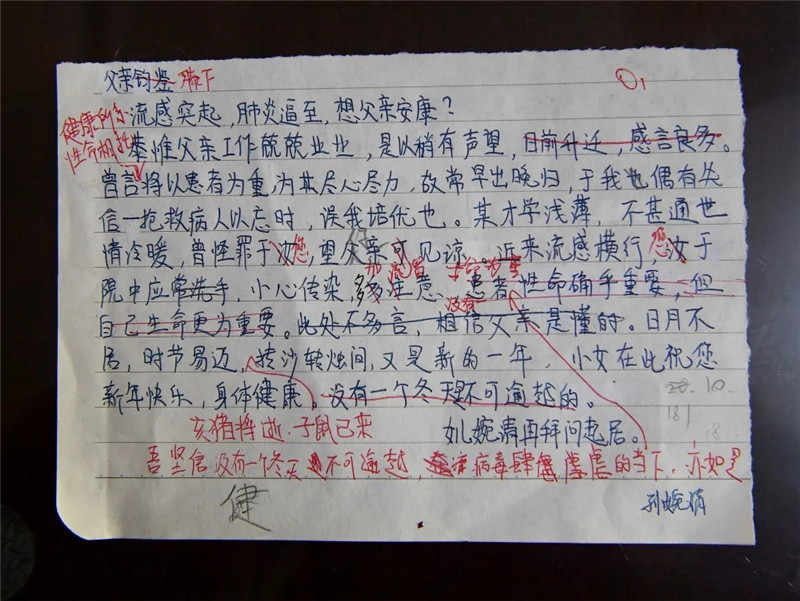 父亲钧鉴 膝下
流感突起，肺炎逼至，想父亲安康？
健康所系
性命相托
恭惟父亲工作兢兢业业，是以稍有声望，目前升迁，感言良多。
曾言将以患者为重，为其尽心尽力，故常早出晚归，于我也偶有失
信—抢救病人以忘时，误我培优也。某才学浅薄，不甚通世
情冷暖，曾怪罪于汝您，望父亲可见谅。近来流感横行，您汝于
院中应常洗手，小心传染，多注意。患者性命确乎重要，但
自己生命更为重要。此处不多言，相信父亲是懂的。日月不
居，时节易迈，转沙转烛间，又是新的一年，小女在此祝您
新年快乐，身体健康。没有一个冬天是不可逾越的。
亥猪将逝，子鼠已来
女儿婉清再拜问起居。
吾坚信没有一个冬天不可逾越，病毒肆虐的当下，亦如是
健